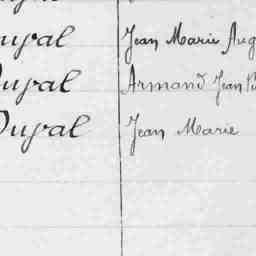 Duval Jean Marie Aug
Duval Armand Jean
Duval Jean Marie